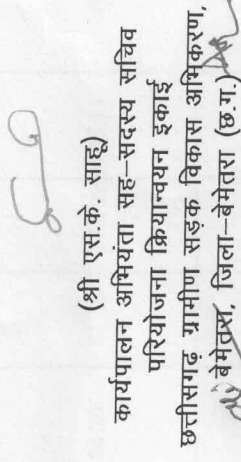 (श्री एस.के. साहू)
कार्यपालन अभियंता सह–सदस्य सचिव
परियोजना क्रियान्वयन इकाई
छत्तीसगढ़ ग्रामीण सड़क विकास अभिकरण,
बेमेतरा, जिला–बेमेतरा (छ.ग.)